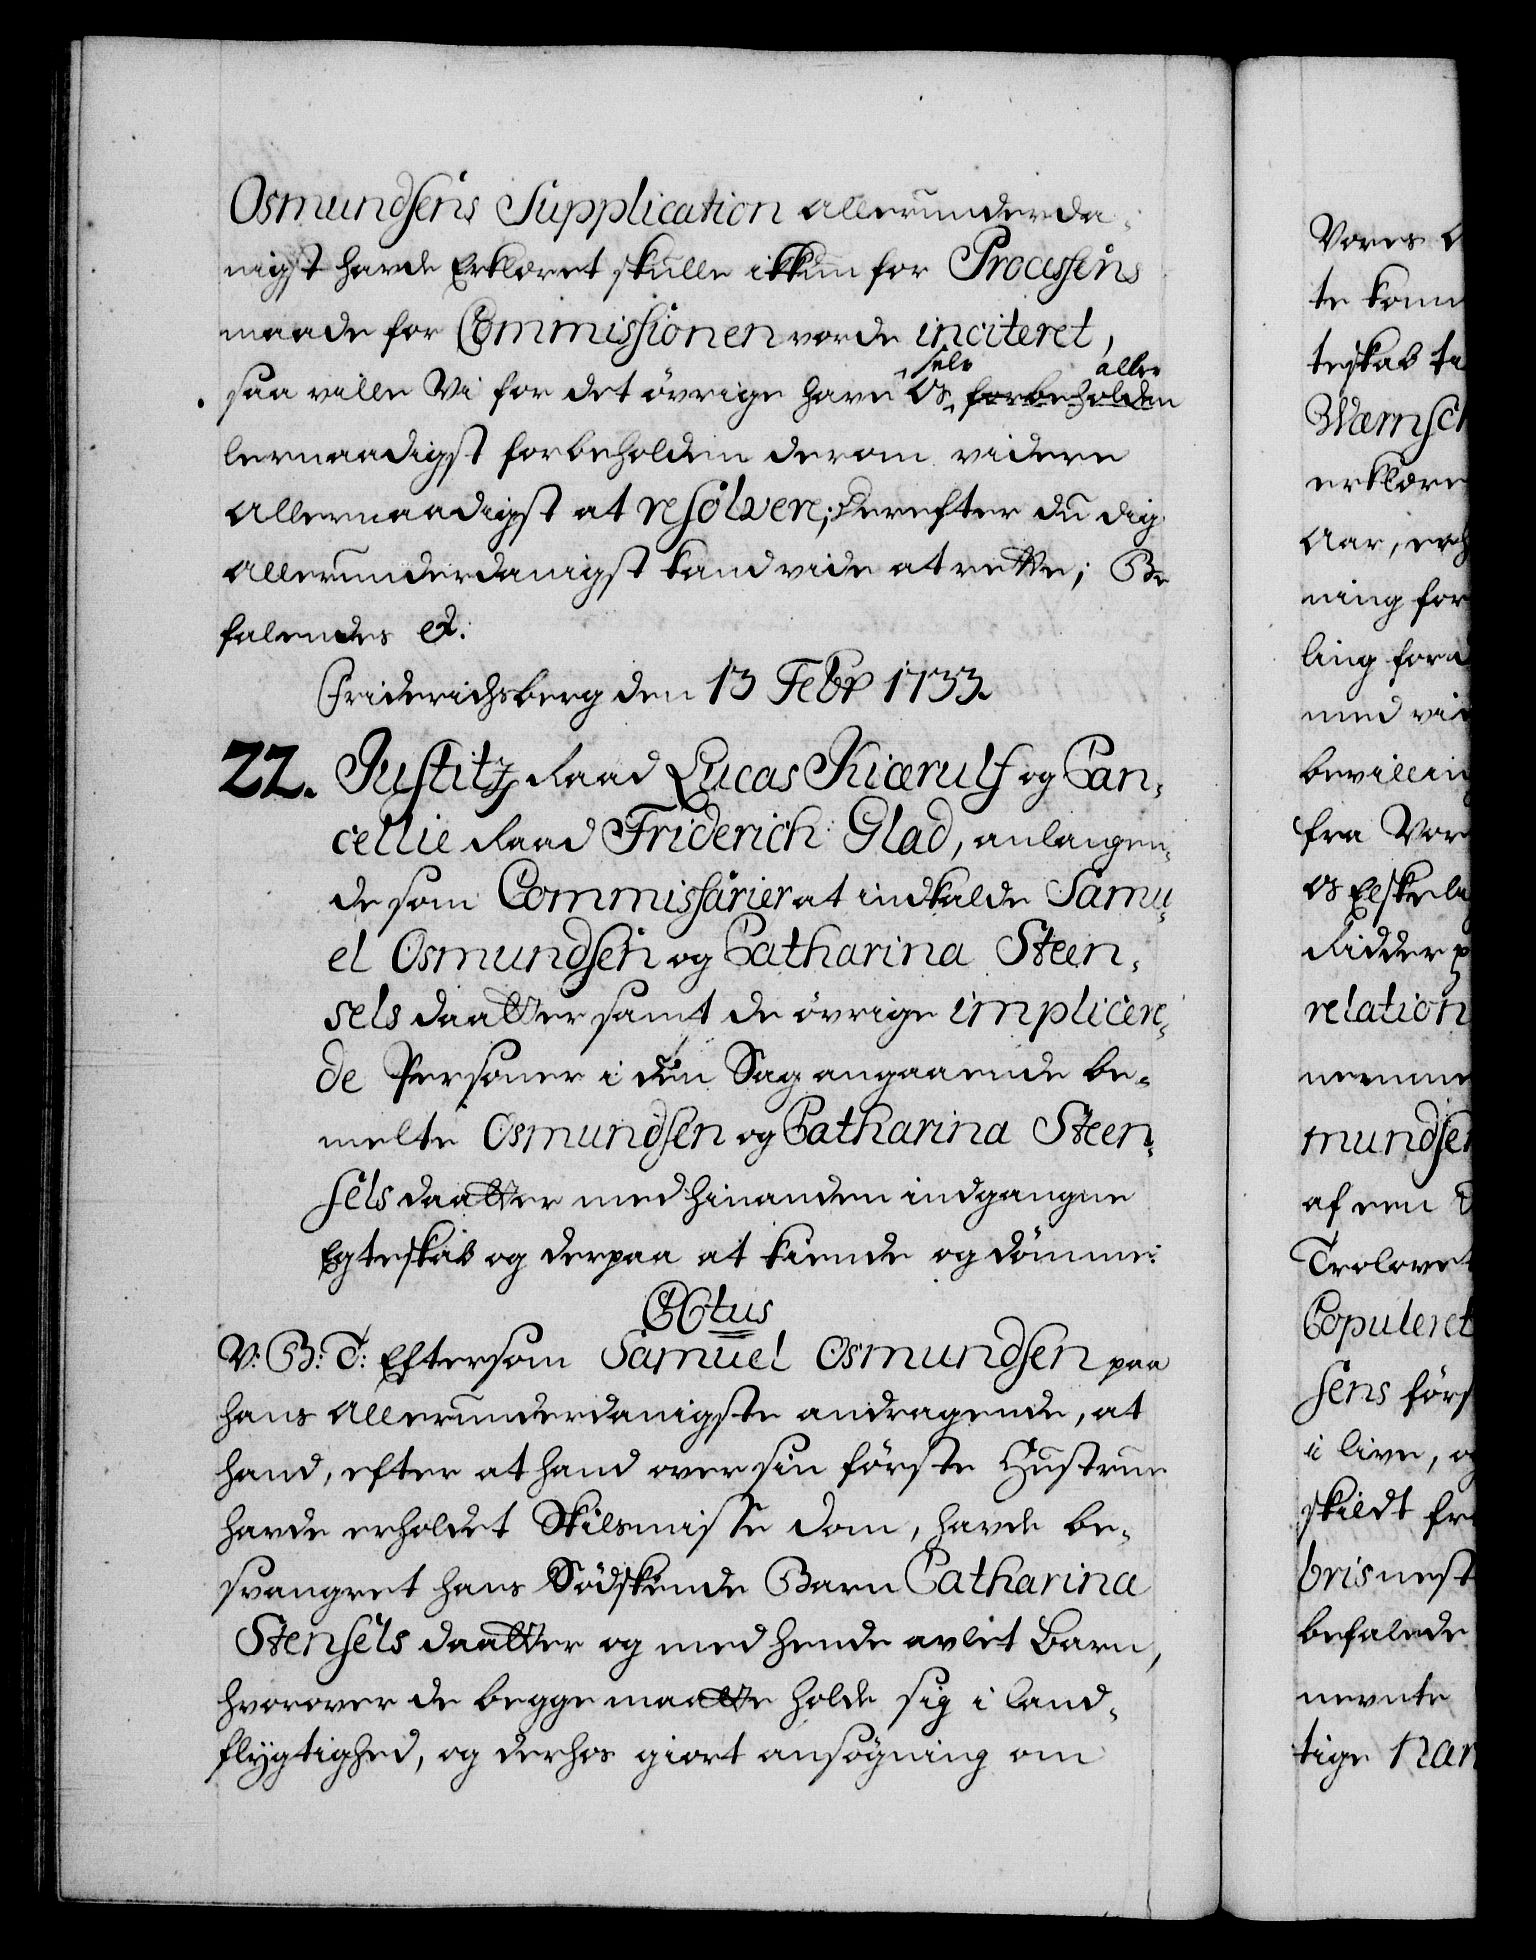 Osmundsens Supplication allerunderda-
nigst havde Erklæret skulle ikkun for Processens
maade for Commissionen vorde inciteret,
saa ville Vi for det övrige have Os selv forbeholden aller
lernaadigst forbeholden derom videre
Allernaadigst at resolvere; derefter du dig
allerunderdanigst kand vide at rette; Be
falendes &.
Friderichsberg den 13 Febr 1733.
22. Justitz Raad Lucas Kiærulf og Can-
cellie Raad Friderich Glad, anlangen-
de som Commissarier at indkalde Samu-
el Osmundsen og Catharina Steen-
sels daatter samt de övrige implicere-
de Personer i den Sag angaaende be-
melte Osmundsen og Catharina Steen-
sels daatter med hinanden indgangne
Egteskab og derpaa at kiende og dömme:
V: G: T: Eftersom Samuel Osmundsen paa
hans allerunderdanigste andragende, at
hand, efter at hand over sin förste Hustrue
havde erholdet Skilsmisse dom, havde be-
svangret hans Södskende Barn Catharina
Stensels daatter og med hende avlet Barn,
hvorover de begge maatte holde sig i land-
flygtighed, og derhos giort ansögning om
Vores
te kom
teskab
Wærnsch
erklære
Aar,
ning for
ling for
med
bevilling
fra Vor
Os Elskelig
Ridder
relation
nemme
mundsen
af een
Trolovet
Copuleret
sens förs
i live, og
skildt fra
bris nest
befalede
nevnte
tige nar